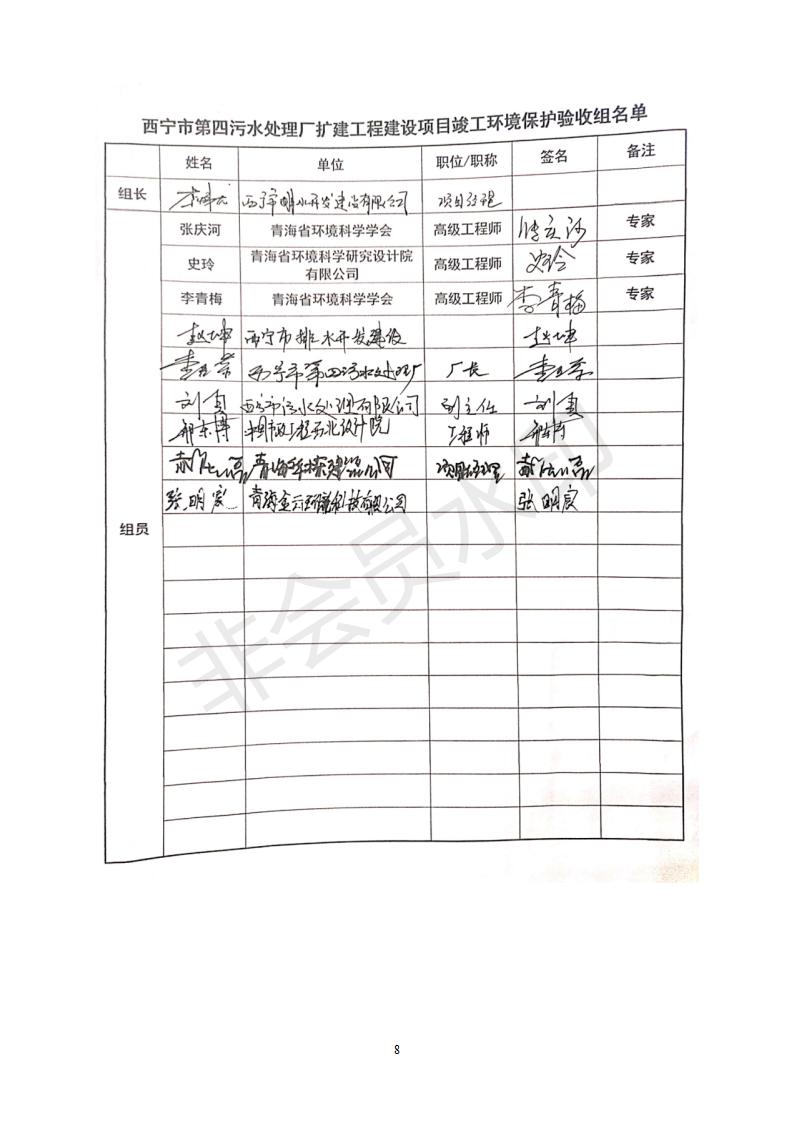 西宁市第四污水处理厂扩建工程建设项目竣工环境保护验收组名单
姓名 单位 职位/职称 签名 备注
组长 西宁市排水开发建设有限公司 项目经理
张庆河 青海省环境科学学会 高级工程师 专家
史玲 青海省环境科学研究设计院
有限公司 高级工程师 史玲 专家
李青梅 青海省环境科学学会 高级工程师 李青梅 专家
赵坤 西宁市排水开发建设 赵坤
西宁市第四污水处理厂 厂长
刘勇 西宁市污水处理有限公司 副主任 刘勇
市政工程西北设计院 工程师
项目经理
张明家 青海 科技有限公司 张明家
组员
非会员水印
8